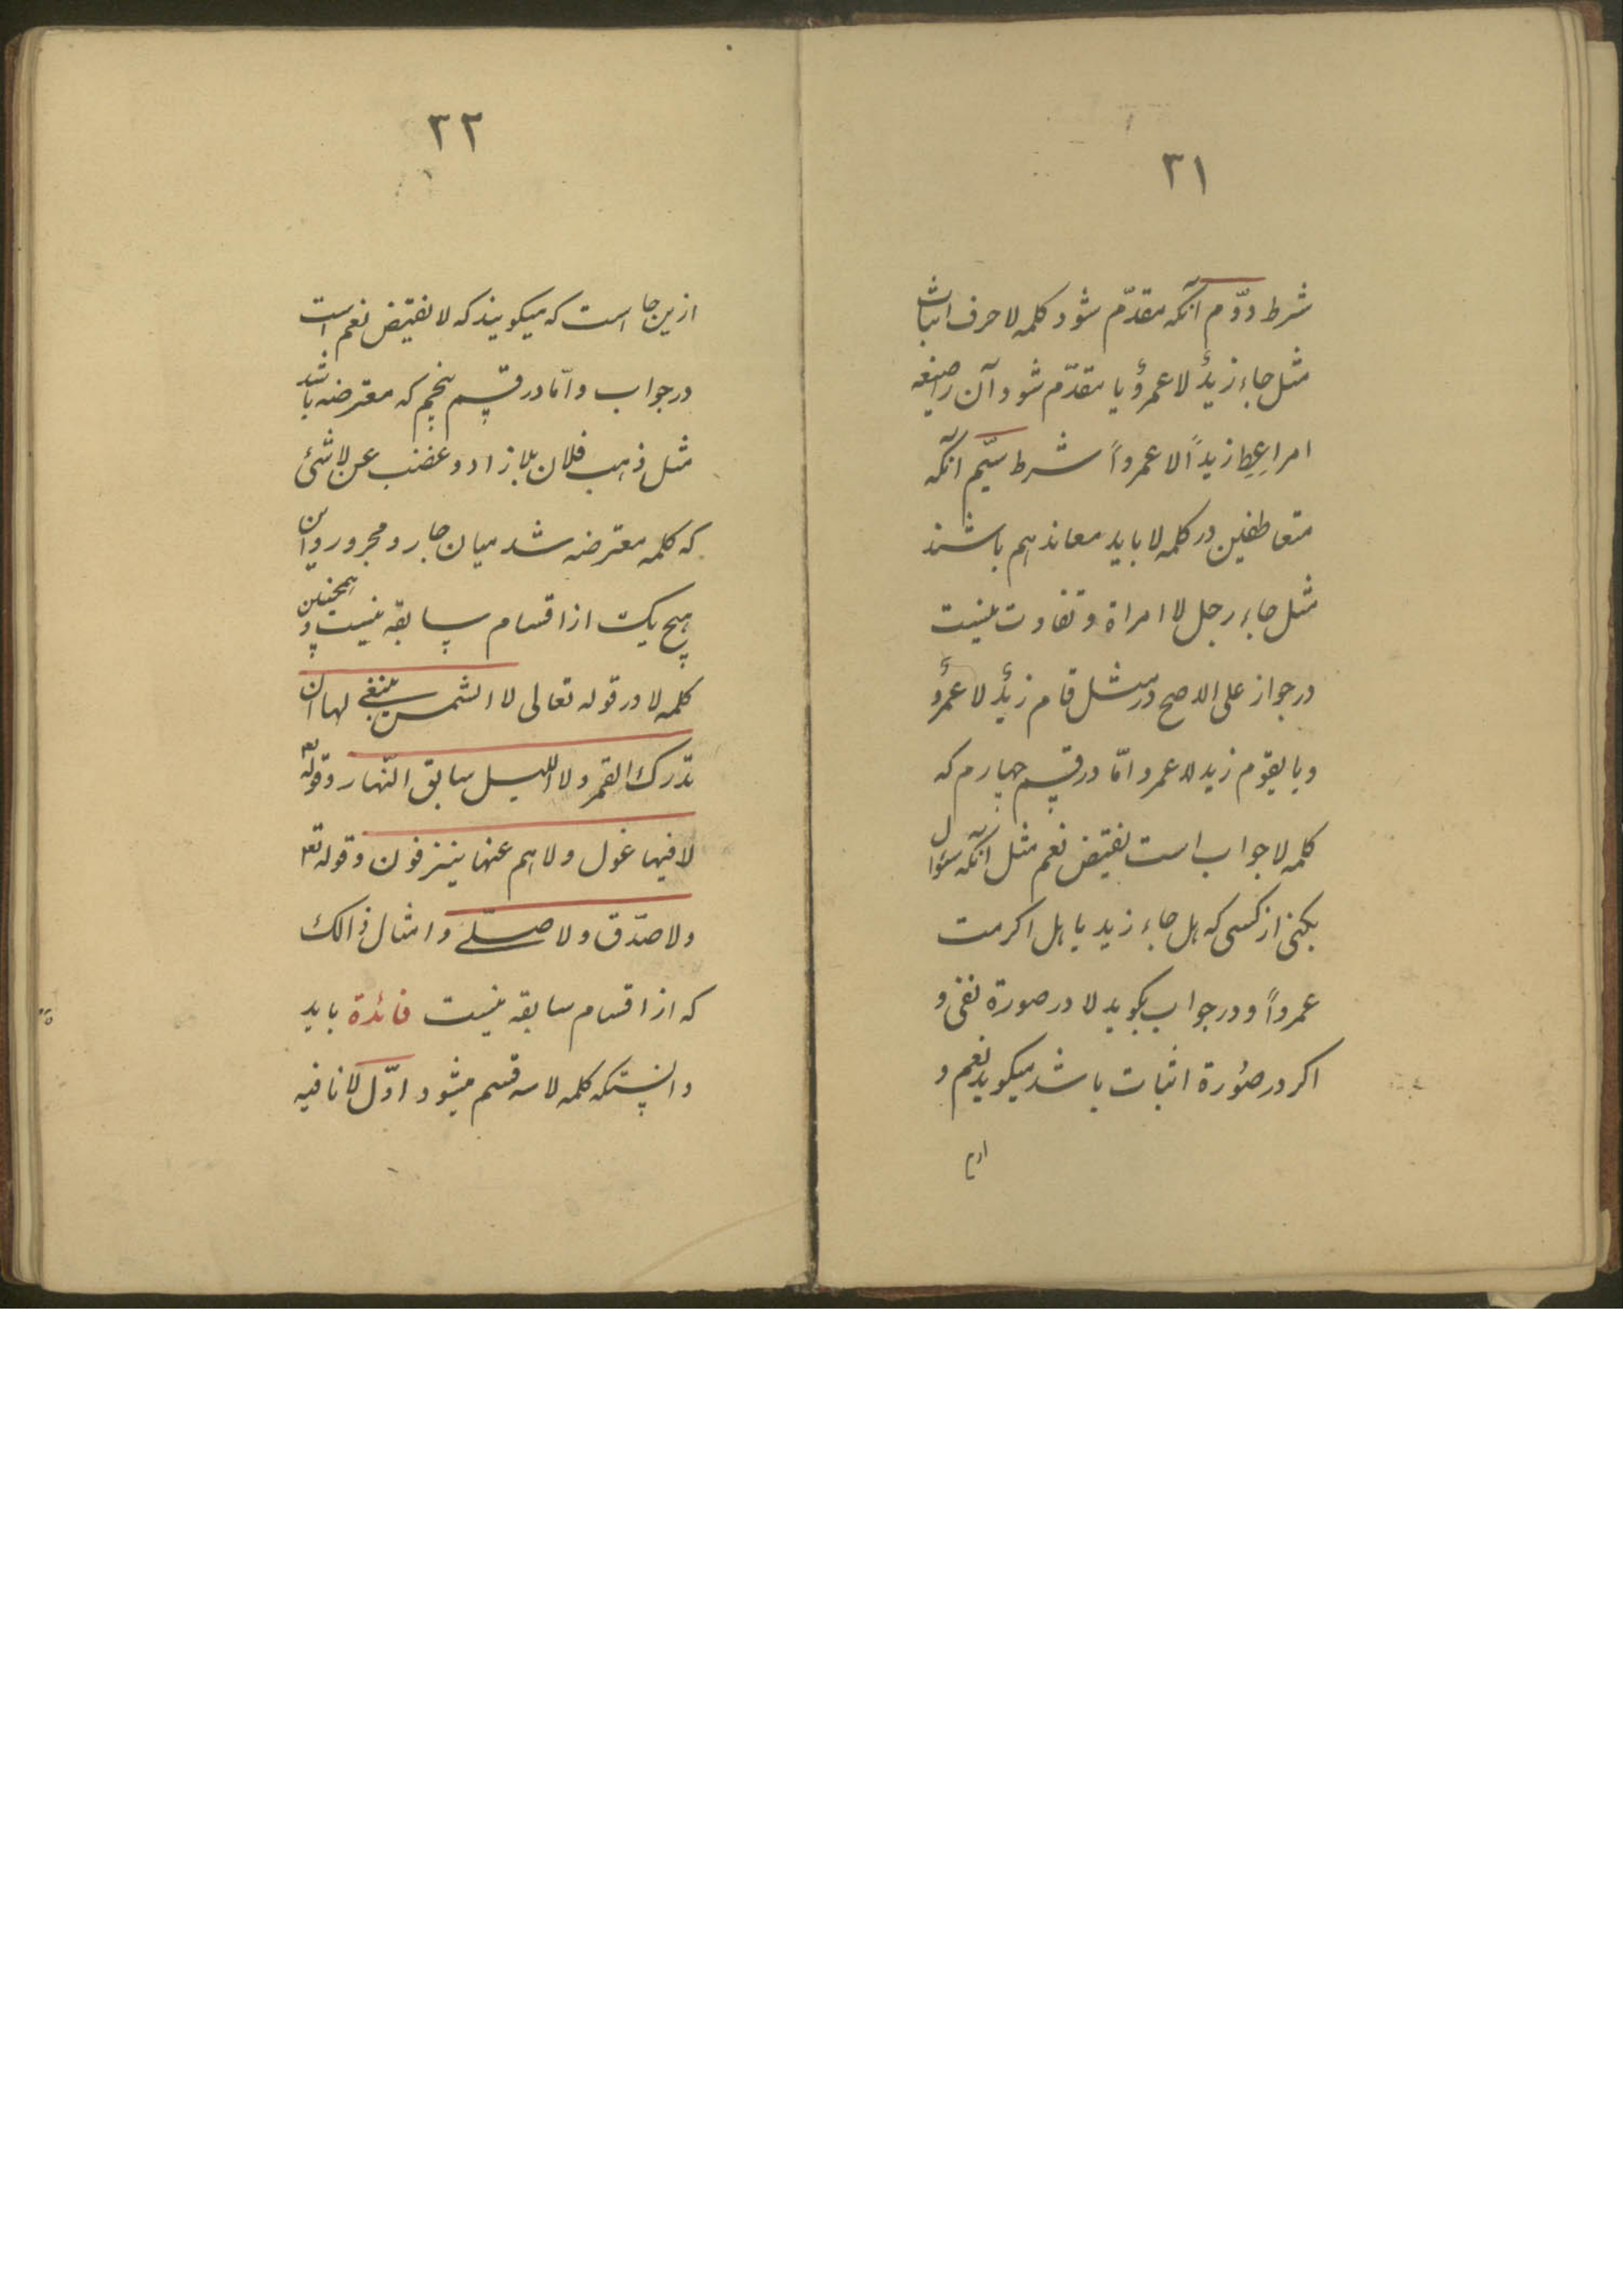 ۳۱
شرط دوّم آنکه مقدّم شود کلمه لا حرف اثبات
مثل جاء زیدٌ لا عمروٌ یا مقدّم شود آن را صیغه
امر اِعطِ زیداً لا عمرواً شرط سیّم آنکه
متعاطفین در کلمه لا باید معاند هم باشند
مثل جاء رجل لا امراة و تفاوت نیست
در جواز علی الاصح در مثل قام زیدٌ لا عمروٌ
و یا یقوم زید لا عمرو امّا در قسم چهارم که
کلمه لا جواب است نقیض نعم مثل آنکه سؤال
بکنی از کسی که هل جاء زید یا هل اکرمت
عمرواً و در جواب بکوید لا در صورة نفی و
اکر در صُورة اثبات باشد میکوید نعم و
ازین
۳۲
ازین جا است که میکویند که لا نقیض نعم است
در جواب و امّا در قسم پنجم که معترضه باشد
مثل ذهب فلان بلا زاد و غضب عن لا شئ
که کلمه معترضه شد میان جار و مجرور و این
هیچ یک از اقسام سابقه نیست و همچنین
کلمه لا در قوله تعالی لا الشمس ینبغی لها ان
تدرک القمر و لا اللیل سابق النّهار و قوله تع
لا فیها غول و لا هم عنها ینزفون و قوله تع
و لا صدّق و لا صلّی و امثال ذالک
که از اقسام سابقه نیست فائدة باید
دانستکه کلمه لا سه قسم میشود اوّل لا نافیه